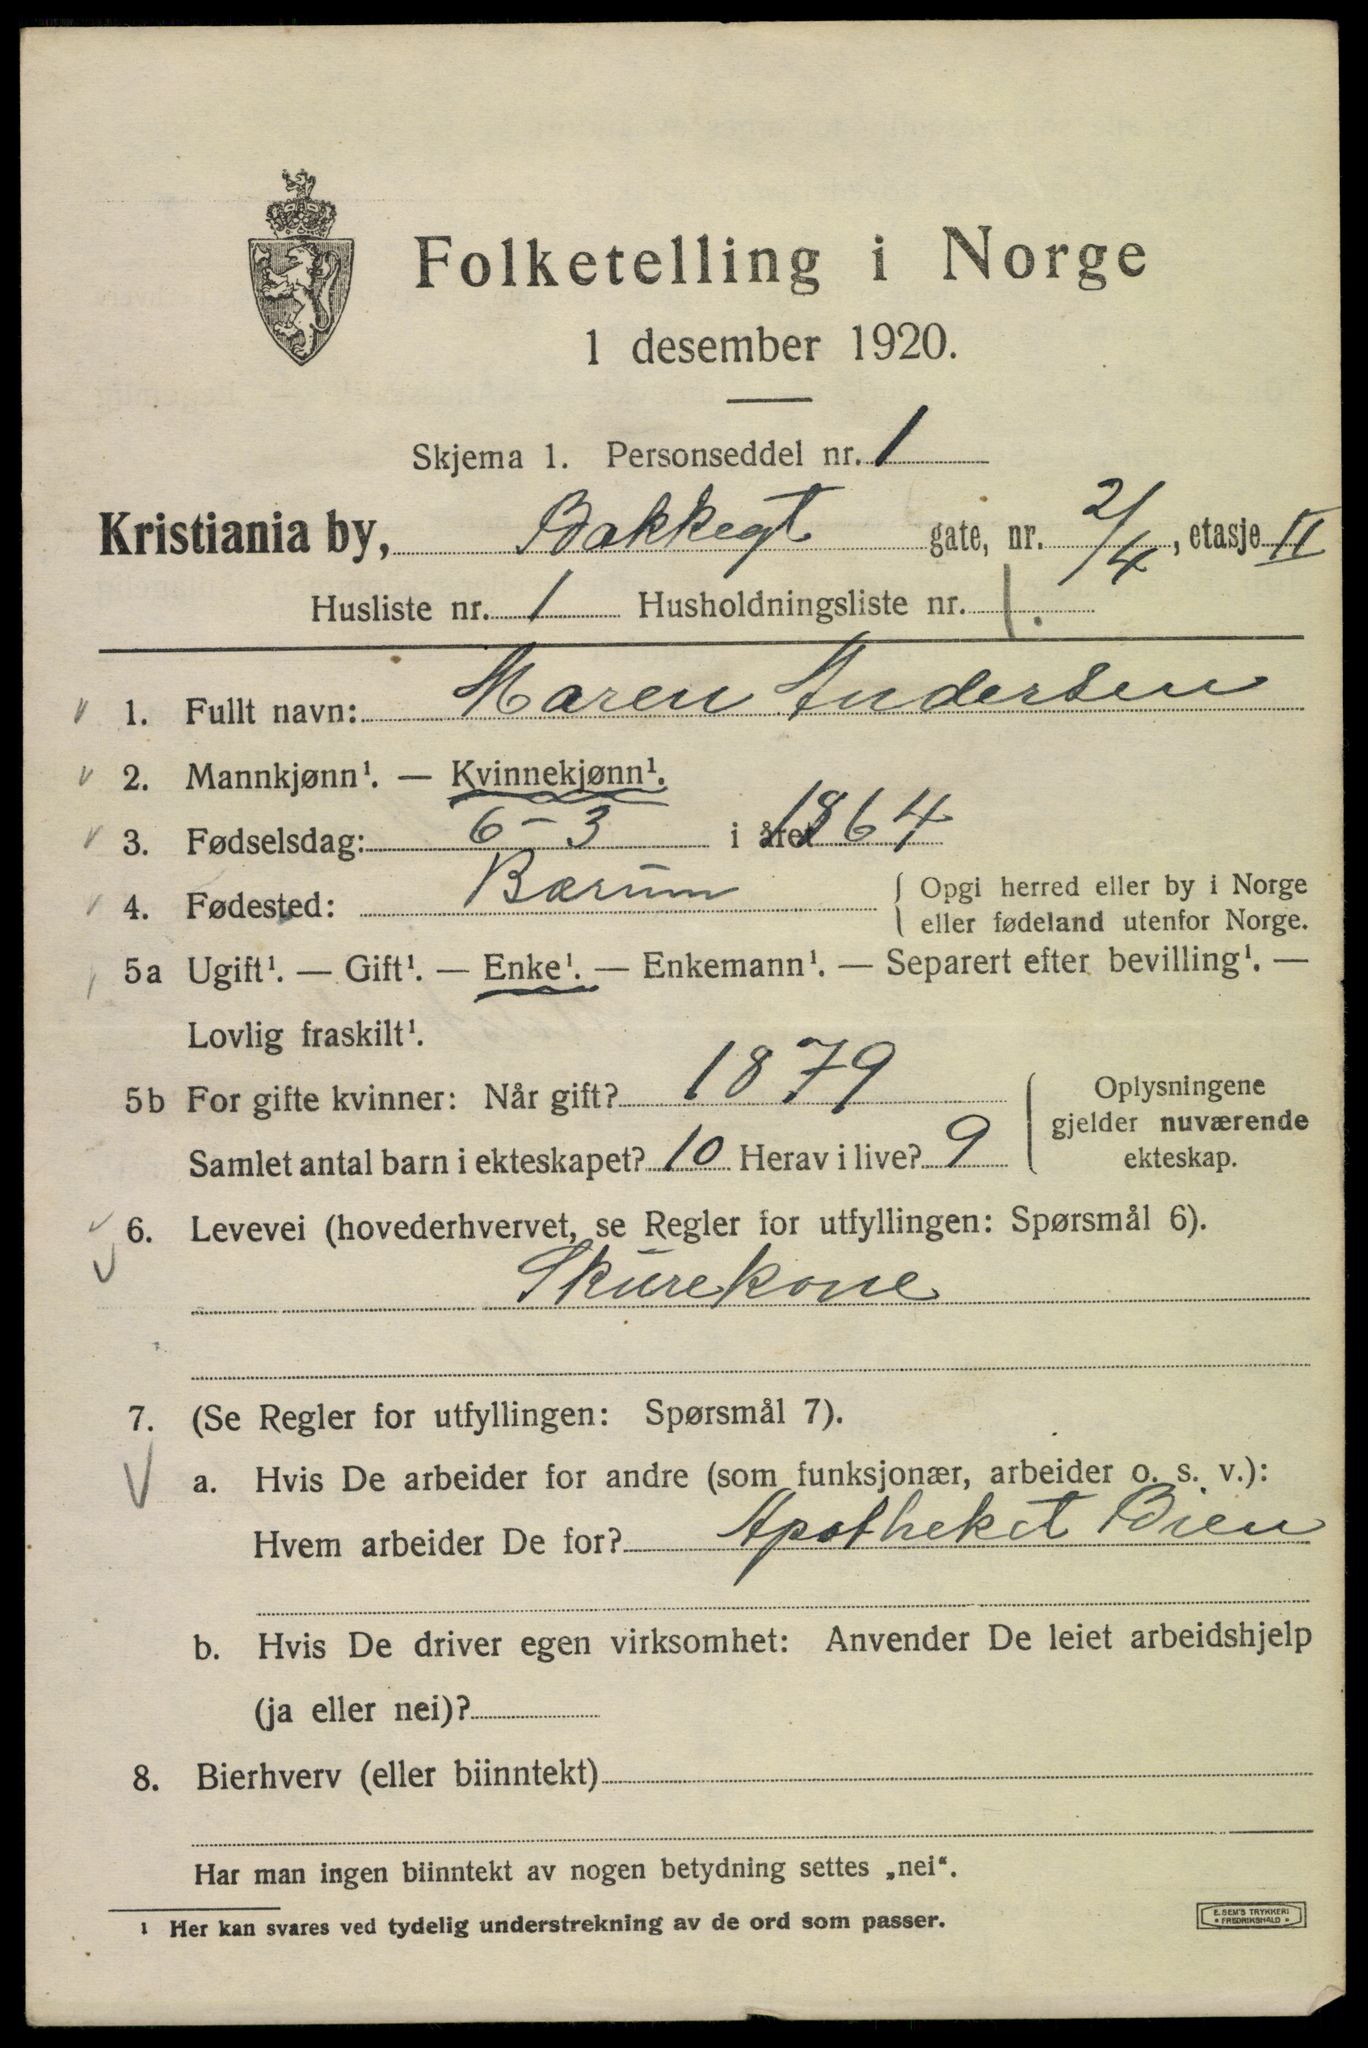 Folketelling i Norge
1 desember 1920.
Skjema 1. Personseddel nr. 1
Kristiania by, Bakkegt gate, nr. 2/4, etasje II
Husliste nr. 1 Husholdningsliste nr. 1.
1. Fullt navn: Maren Andersen
2. Mannkjønn¹. — Kvinnekjønn¹.
3. Fødselsdag: 6-3 i året 1864
4. Fødested: Bærum { Opgi herred eller by i Norge
eller fødeland utenfor Norge.
5a Ugift¹. — Gift¹. — Enke¹. — Enkemann¹. — Separert efter bevilling¹. —
Lovlig fraskilt¹.
5b For gifte kvinner: Når gift? 1879
Samlet antal barn i ekteskapet? 10 Herav i live? 9
Oplysningene
gjelder nuværende
ekteskap.
6. Levevei (hovederhvervet, se Regler for utfyllingen: Spørsmål 6).
Skurekone
7. (Se Regler for utfyllingen: Spørsmål 7).
a. Hvis De arbeider for andre (som funksjonær, arbeider o. s. v.):
Hvem arbeider De for? Apotheket Bien
b. Hvis De driver egen virksomhet: Anvender De leiet arbeidshjelp
(ja eller nei)?
8. Bierhverv (eller biinntekt)
Har man ingen biinntekt av nogen betydning settes „nei“.
¹ Her kan svares ved tydelig understrekning av de ord som passer.
E. SEM'S TRYKKERI
• FREDRIKSHALD •